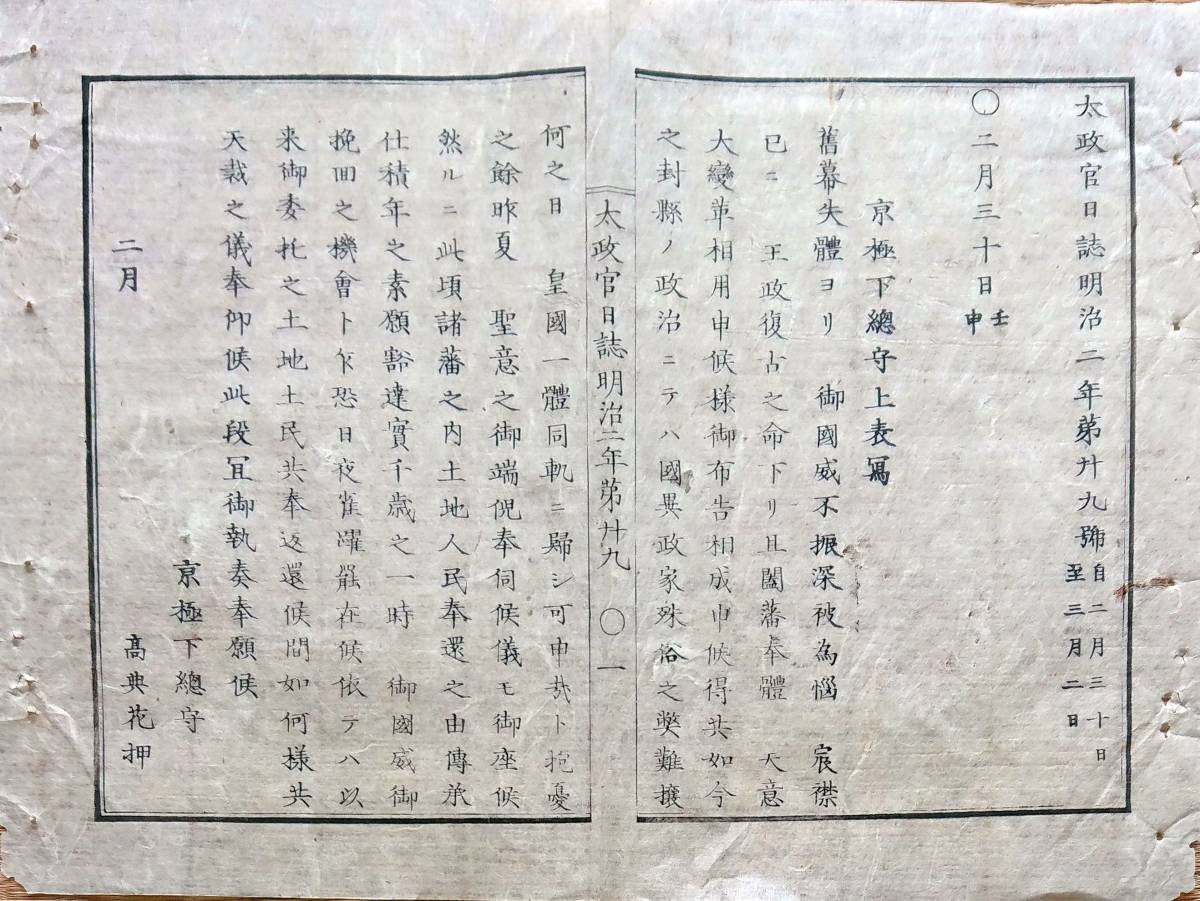 太政官日誌明治二年第廿九號 自二月三十日
至三月二日
〇二月三十日 壬
申
京極下總守上表寫
舊幕失體ヨリ 御國威不振深被為惱 宸襟
已ニ 王政復古之命下リ且闔藩奉體 天意
大變革相用申候様御布告相成申候得共如今
之封縣ノ政治ニテハ國異政家殊俗之獘難擬
太政官日誌明治二年第廿九 〇一
何之日 皇國一體同軌ニ歸シ可申㢤ト抱憂
之餘昨夏 聖意之御端倪奉伺候儀モ御座候
然ルニ此頃諸藩之内土地人民奉還之由傳承
仕積年之素願豁達實千歳之一時 御國威御
挽回之機會ト乍恐日夜雀躍罷在候依テハ以
来御委托之土地土民共奉返還候間如何様共
天裁之儀奉仰候此段冝御執奏奉願候
京極下總守
二月 高典花押